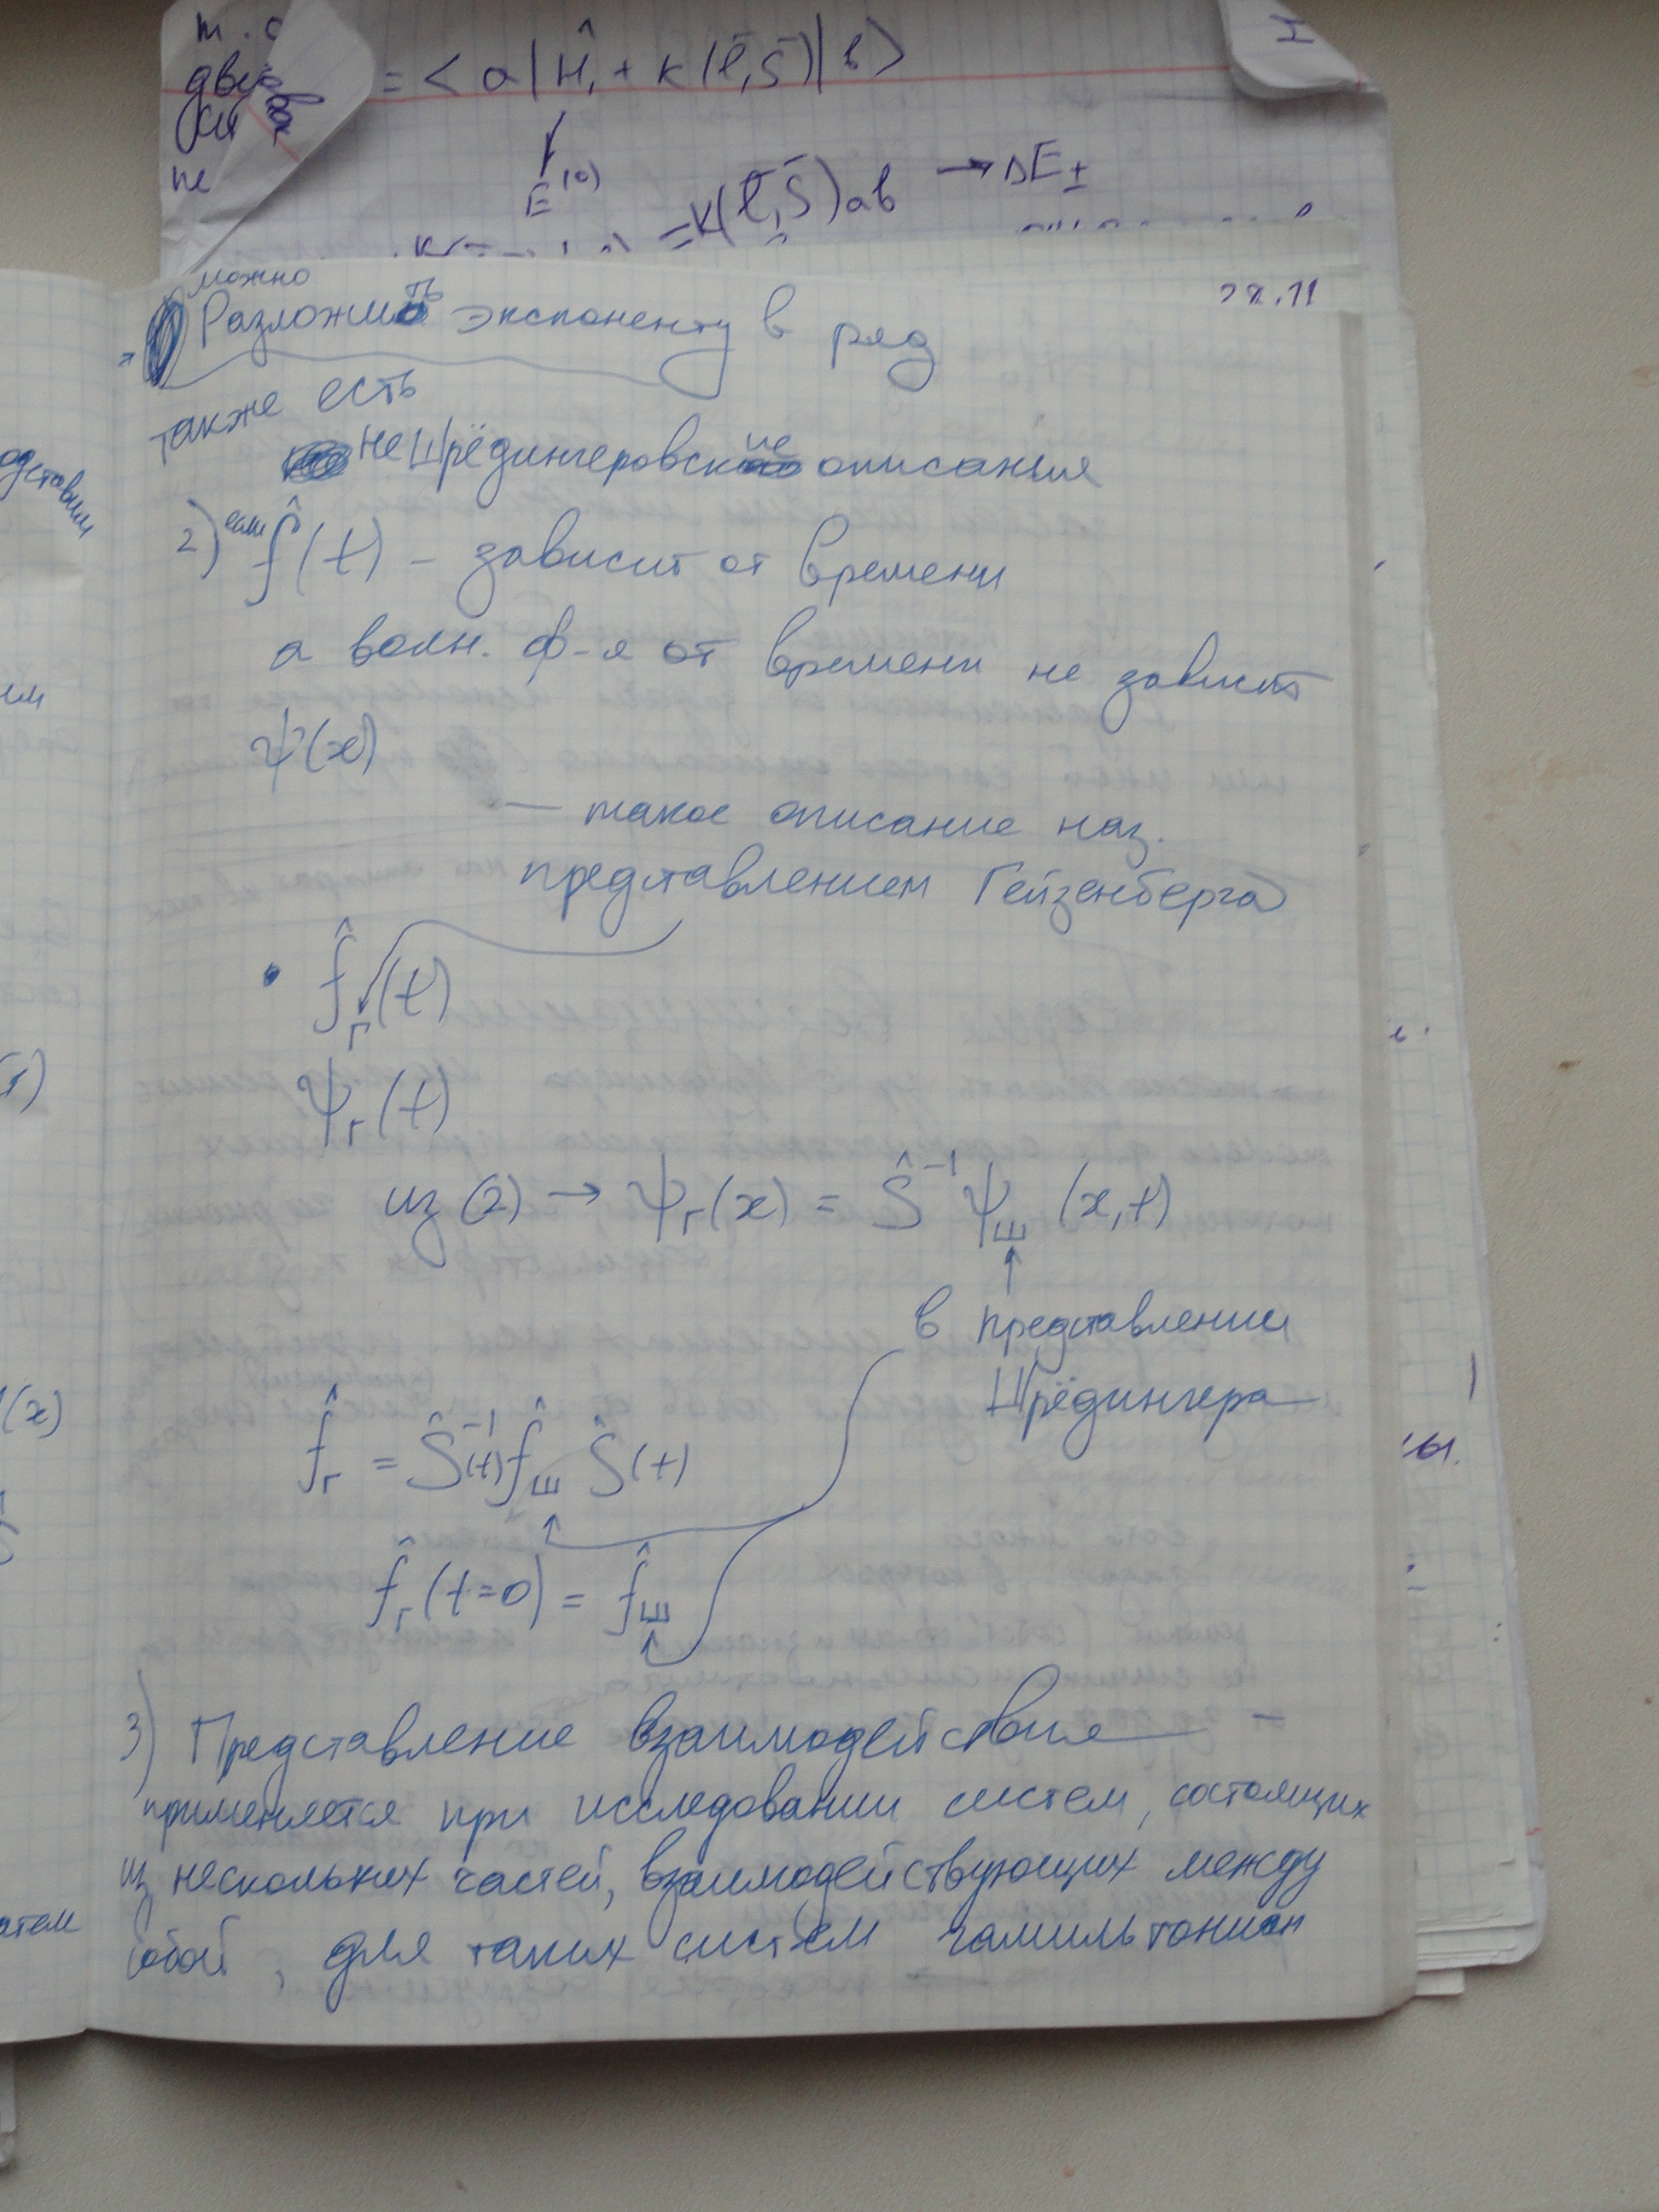 т.о
= <a|Ĥ, + K(l̄,s̄)|b>
не
E⁽⁰⁾ = K(l̄,s̄)ab → ΔE±
28.11
можно
Разложить экспоненту в ряд
также есть
не Шрёдингеровские описания
2) если f̂(t) - зависит от времени
а волн. ф-я от времени не зависит
ψ(x)
— такое описание наз.
представлением Гейзенберга
• f̂г(t)
ψг(t)
из (2) → ψг(x) = Ŝ⁻¹ψш (x,t)
в представлении
Шрёдингера
f̂г = Ŝ⁻¹(t) f̂ш Ŝ(t)
f̂г(t=0) = f̂ш
3) Представление взаимодействия -
применяется при исследовании систем, состоящих
из нескольких частей, взаимодействующих между
собой, для таких систем гамильтониан